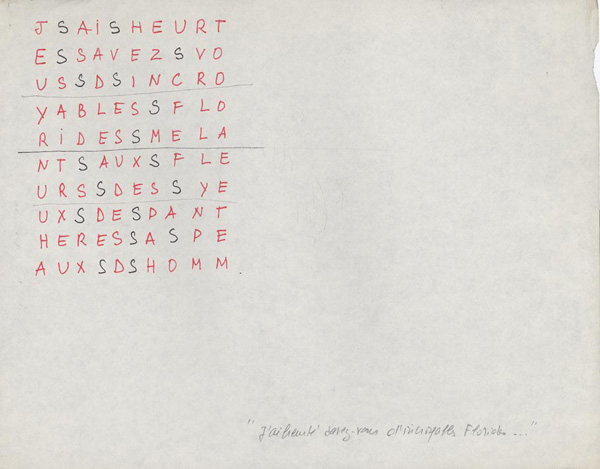 JSAISHEURT
ESSAVEZSVO
USSDSINCRO
YABLESSFLO
RIDESSMELA
NTSAUXSFLE
URSSDESSYE
UXSDESPANT
HERESSASPE
AUXSDSHOMM
"J'ai heurté savez-vous d'incroyables Florides ..."